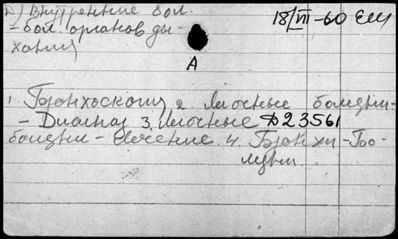 А) Внутренние бол. 18/VII-60 ЕШ
- бол. органов ды-
хания
А
1. Бронхоскопия 2 Легочные болезни-
- Диагноз 3. Легочные Д23561
болезни - Лечение. 4. Бронхи-Бо-
лезни